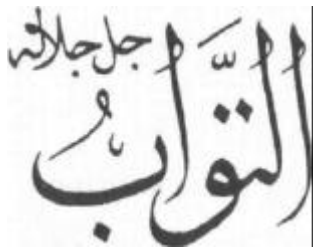 التوّابُ
جل جلاله